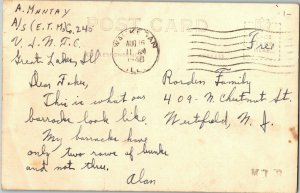 A. Muntay
A/S (E.T.M) C. 245
U. S. N. T. C.
Great Lakes, Ill
POST CARD
WAUKEGAN
AUG 16
11 AM
1948
ILL.
Free
Dear Folks,
This is what our
barracks look like.
My barracks have
only two rows of bunks
and not three.
Alan
Rorden Family
409 - N Chestnut St.
Westfield, N. J.